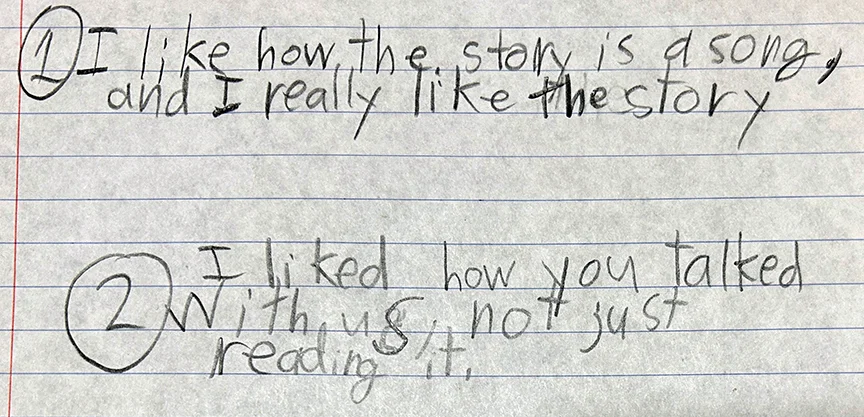 1 I like how the story is a song,
and I really like the story
I liked how you talked
2 with us, not just
reading it.